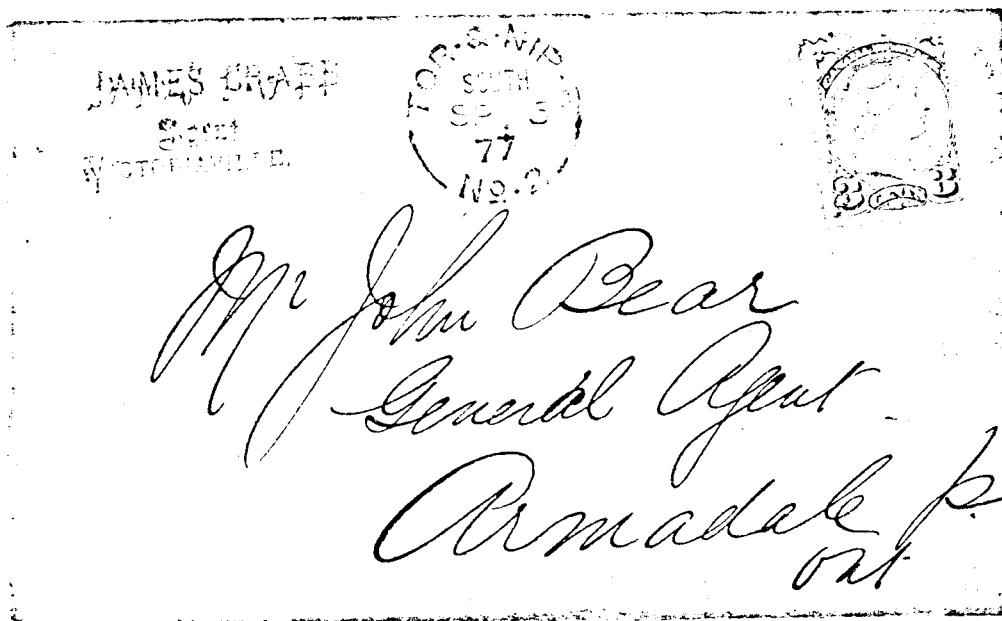 JAMES
TOR. & NIP.
SOUTH
SP 3
77
No. 2
3 3
Mr John Bear
General Agent
Armadale P.
Ont